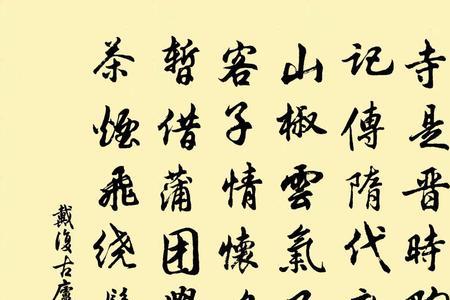 寺是晉時陶
記傳隋代
山椒雲氣
客子情懷
暫借蒲团
茶煙飛绕
戴復古廬